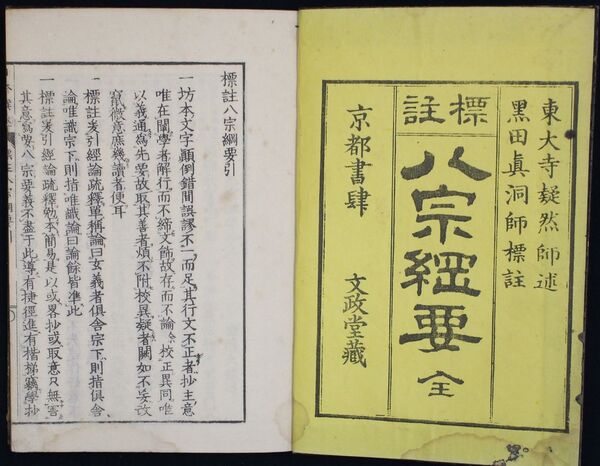 東大寺凝然師述
黑田眞洞師標註
標註
八宗綱要 全
京都書肆
文政堂藏
標註八宗綱要引
一坊本文字顛倒錯間誤謬不一而足其行文不正者抄主意
唯在闡學者解行而不締文飾故存而不論今校正異同唯
以義通爲先要故取其善者煩不附校異疑者闕如不妄改
竄微意庶幾讀者使耳
一標註爰引經論疏釋單稱論曰玄義者俱舍宗下則指俱舍
論唯識宗下則指唯識論曰論餘皆準此
一標註爰引經論疏釋勉本簡易是以或畧抄或取意只無害
其意爲要八宗要義不盡于此導有捷徑進有楷梯竊學抄